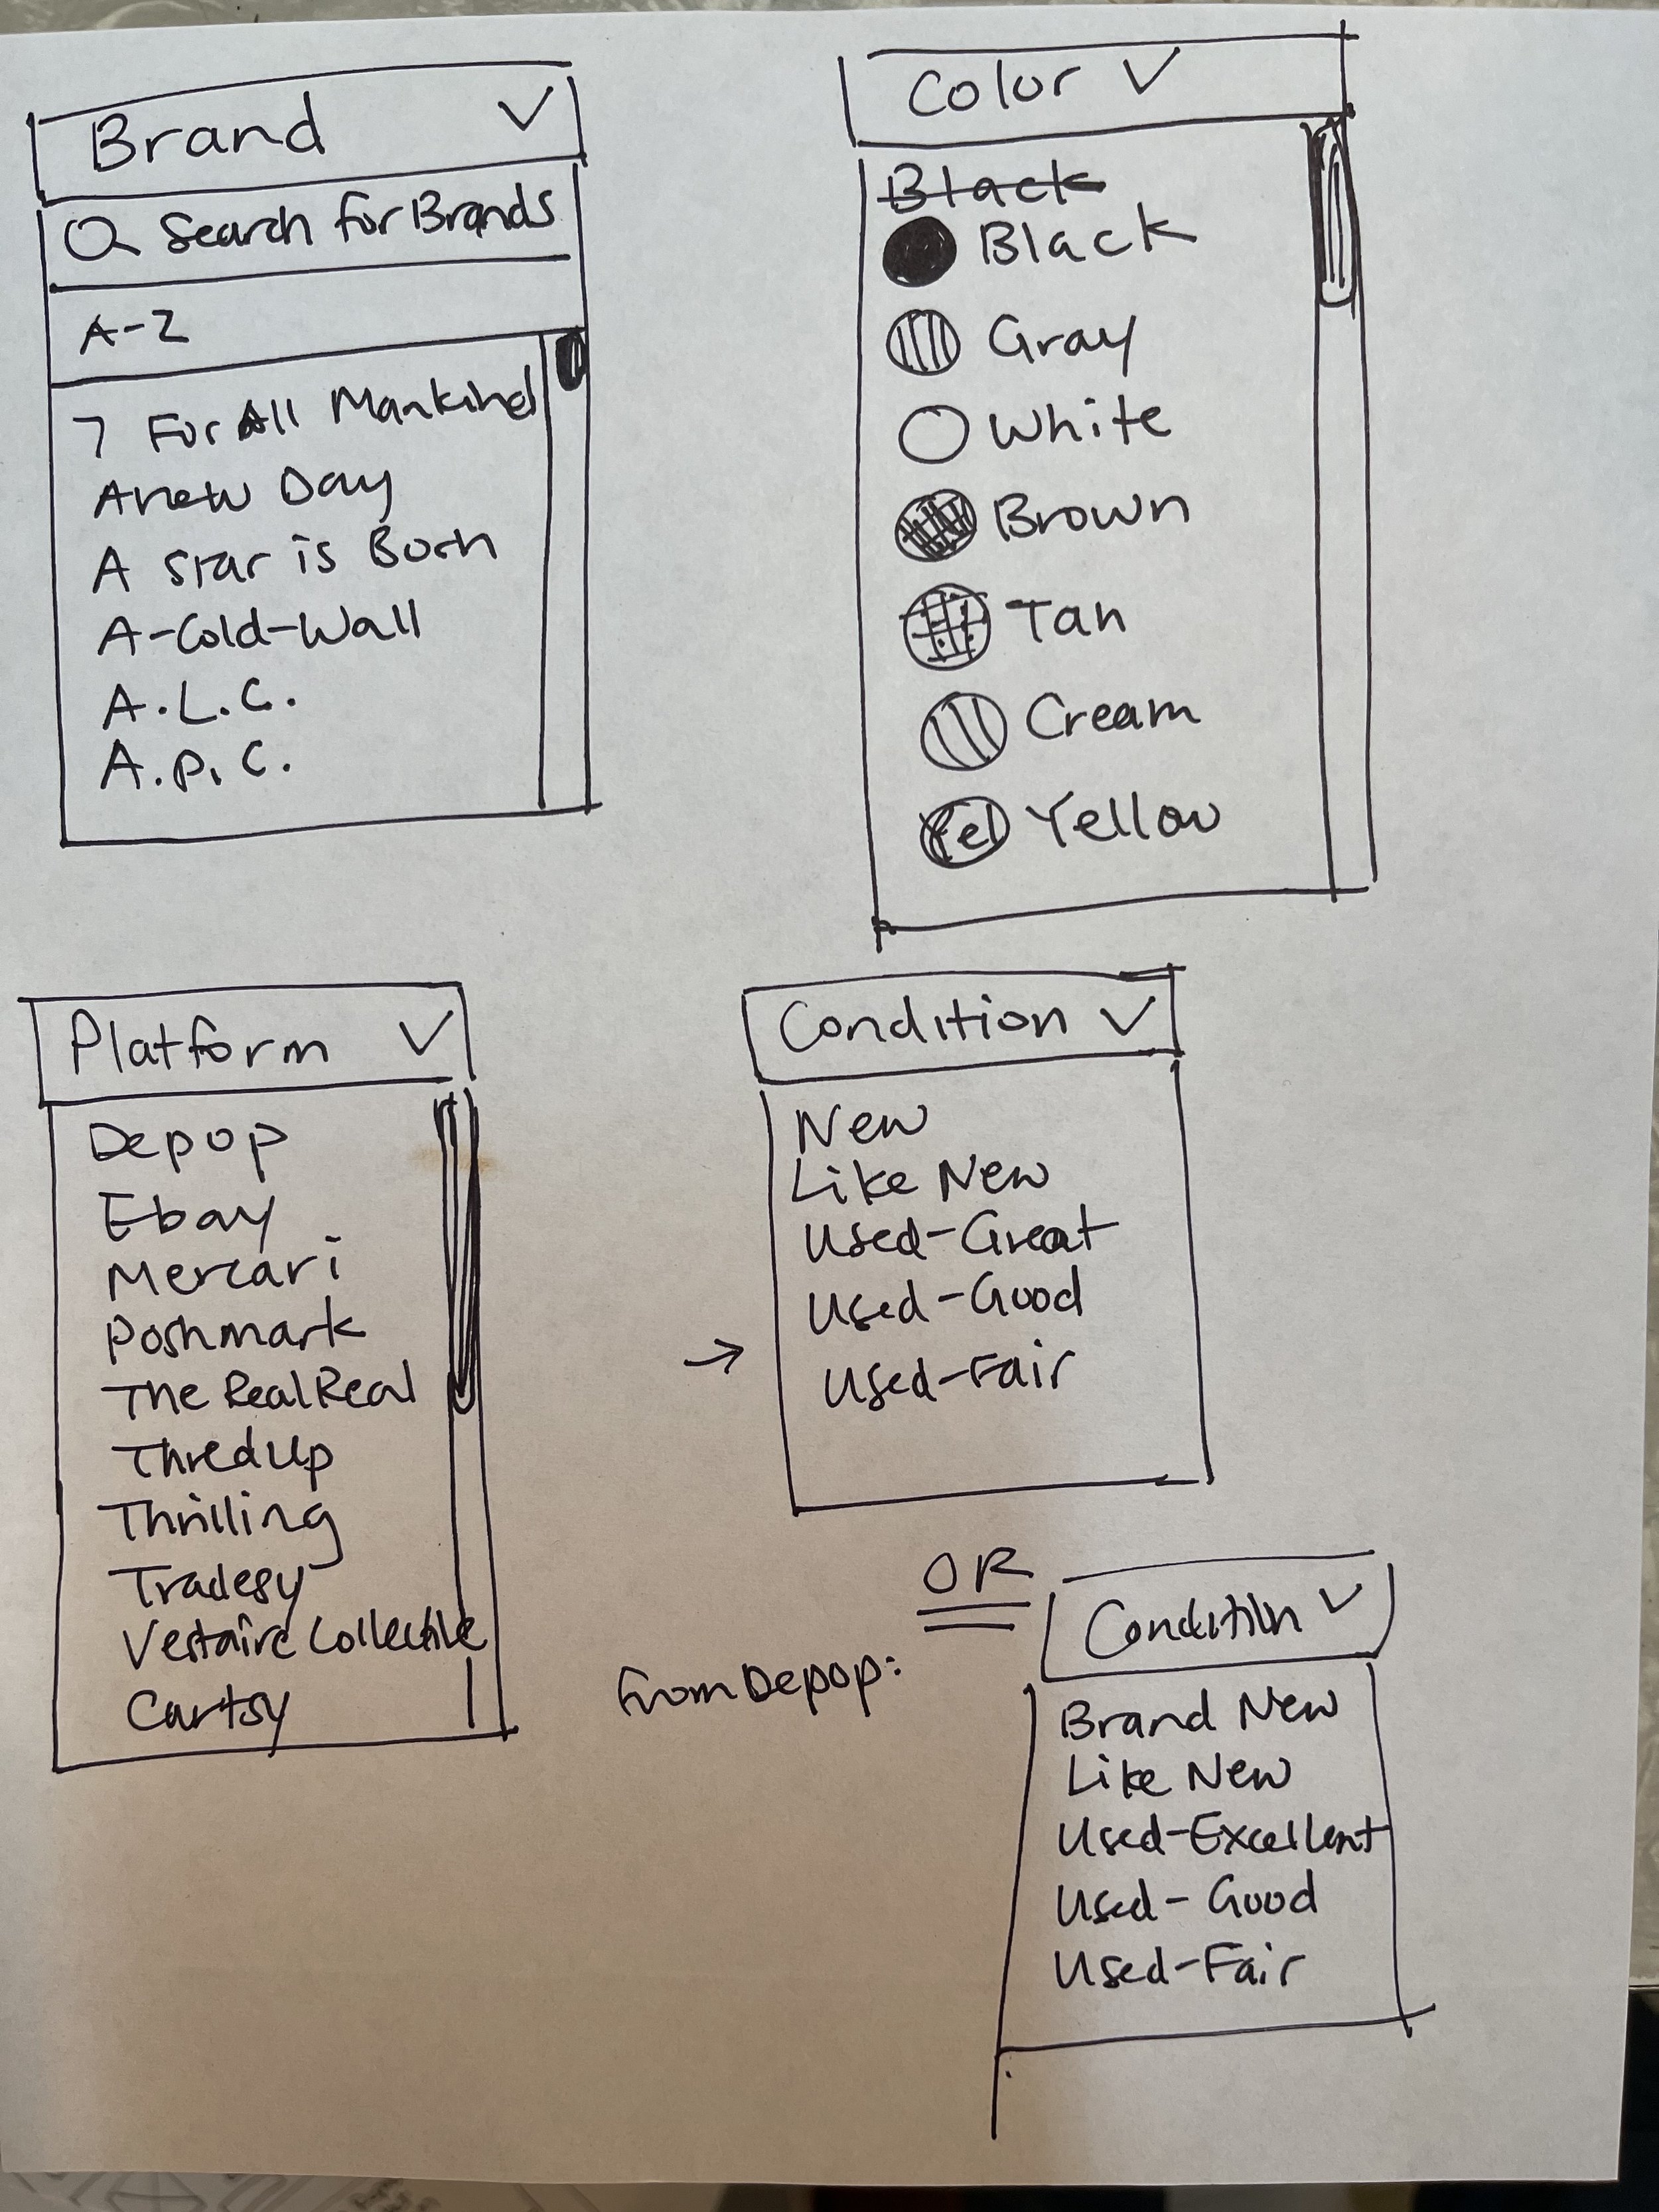 Brand
Search for Brands
A-Z
7 For All Mankind
A new Day
A star is Born
A-Cold-Wall
A.L.C.
A.P.C.
Color
Black
Black
Gray
White
Brown
Tan
Cream
Yel Yellow
Platform
Depop
Ebay
Mercari
Poshmark
The RealReal
ThredUp
Thrilling
Tradesy
Vestaire Collective
Cartsy
Condition
New
Like New
Used-Great
Used-Good
→ Used-Fair
OR
From Depop:
Condition
Brand New
Like New
Used-Excellent
Used-Good
Used-Fair